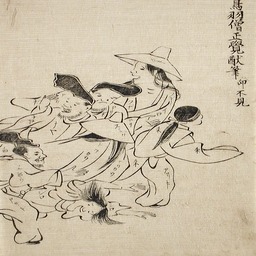 鳥羽僧正覚猷筆
印不見